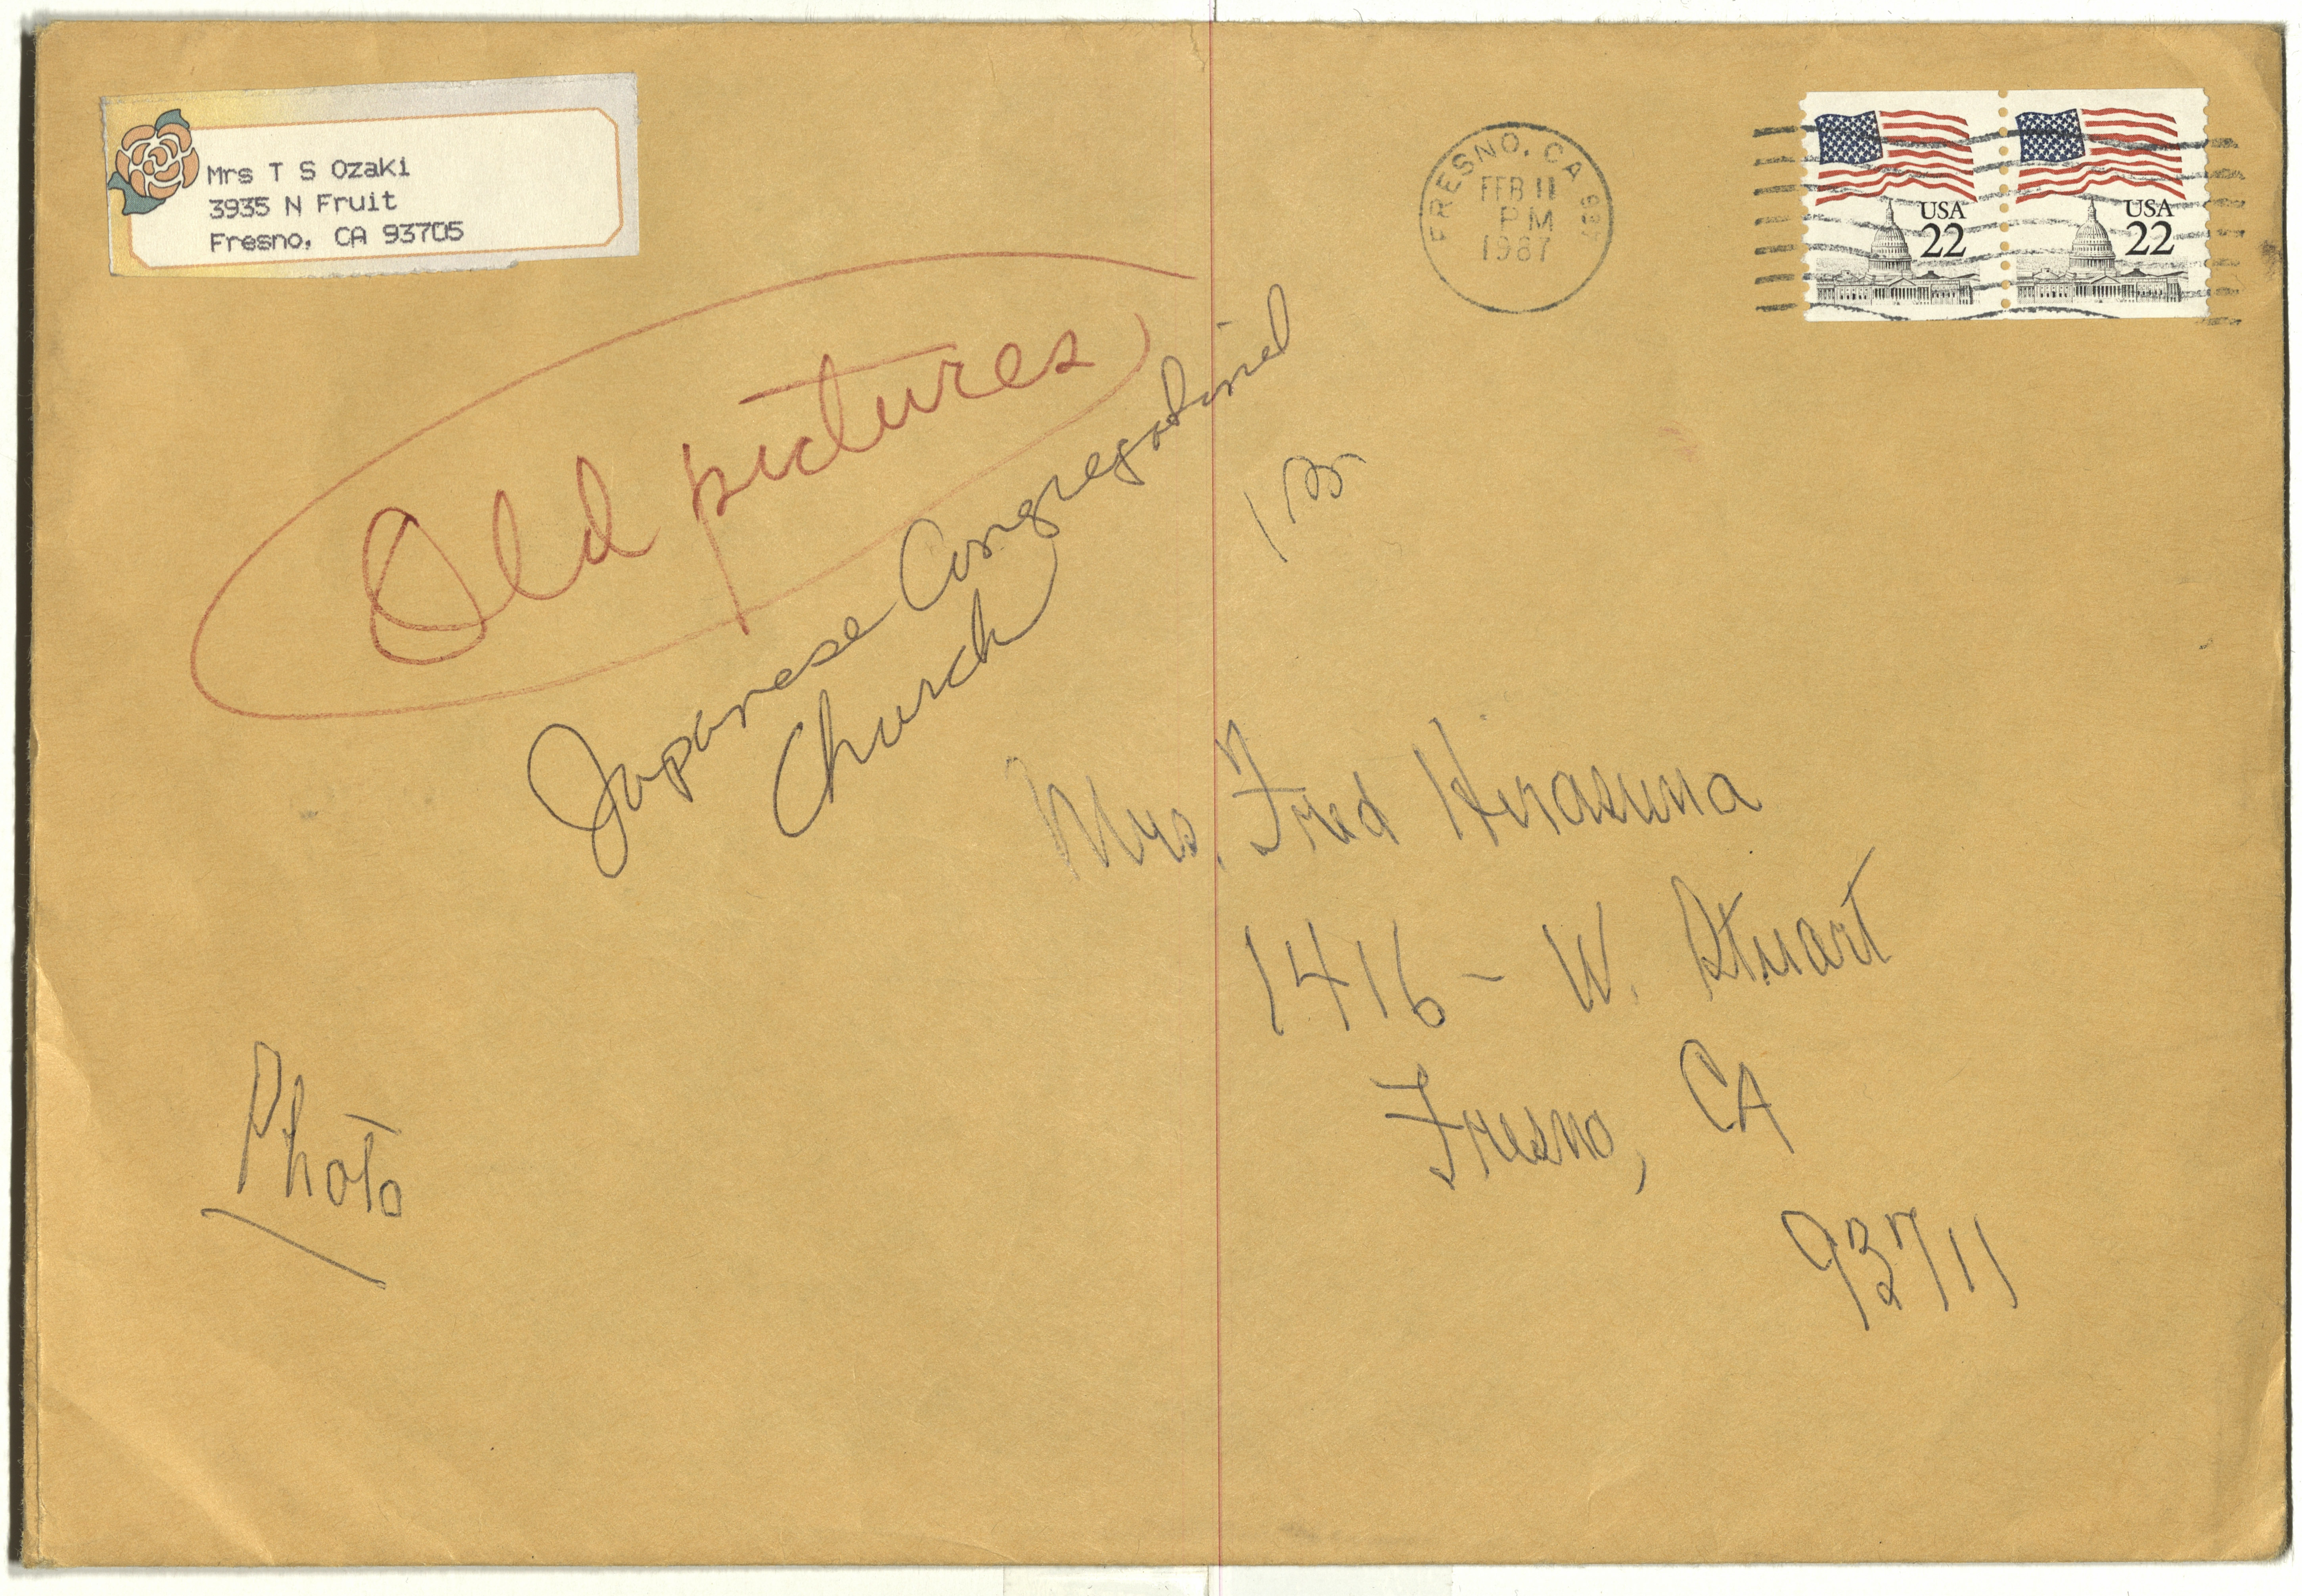 Mrs T S Ozaki
3935 N Fruit
Fresno, CA 93705
FRESNO, CA
FEB 11
PM
1987
USA
22
USA
22
Old pictures
Japanese Congregational
Church
Mrs. Fred Hirasuna
1416 - W. Stuart
Fresno, CA
93711
Photo